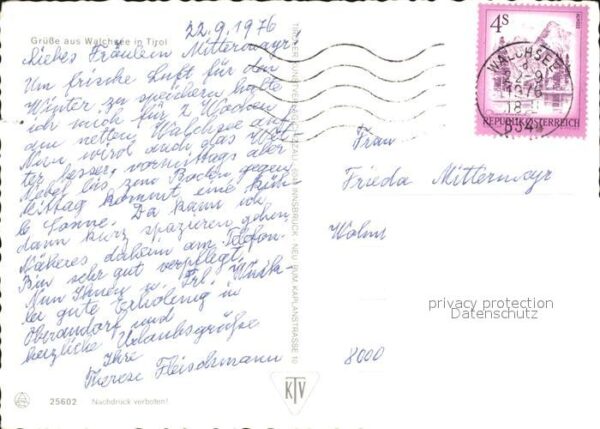 Grüße aus Walchsee in Tirol
22.9.1976
Liebes Fräulein Mittermayr
Um frische Luft für den
Winter zu speichern halte
ich mich für 2 Wochen
den netten Walchsee auf
Nun wird auch das Wet-
ter besser, vormittags aber
Nebel bis zum Boden, gegen
Mittag kommt eine
Sonne. Da kann ich
dann kurz spazieren gehen
Näheres daheim am Telefon.
Bin sehr gut verpflegt.
Nun Ihnen u. Frl.
gute Erholung in
Oberaudorf und
herzliche Urlaubsgrüße
Ihre
Therese Fleischmann
25602 Nachdruck verboten!
KTV
INNSBRUCK, NEU-RUM KAPLANSTRASSE 10
4S
WALCHSEE
22-9
1976
18
REPUBLIK ÖSTERREICH
Frau
Frieda Mittermayr
8000
privacy protection
Datenschutz